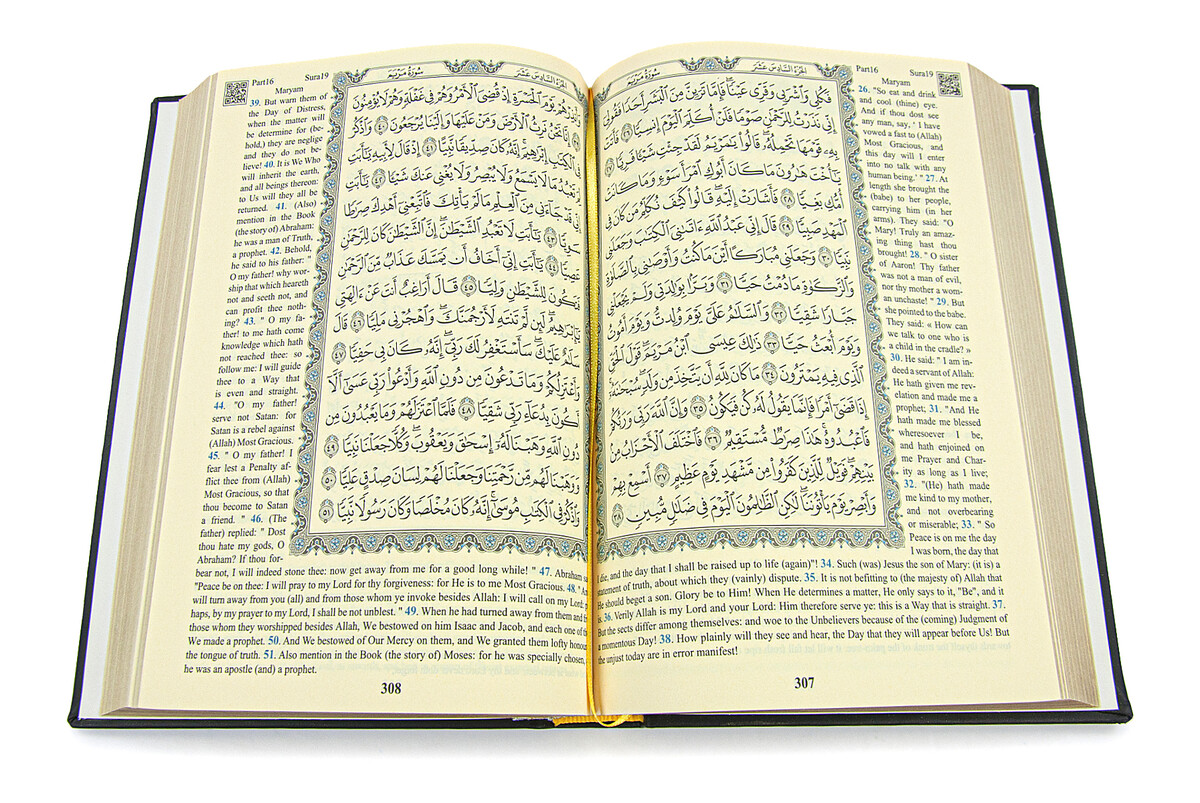 Part16 Sura19
Maryam
الجُزْءُ السَّادِسَ عَشَرَ
سُورَةُ مَرْيَمَ
فَكُلِى وَٱشْرَبِى وَقَرِّى عَيْنًا ۖ فَإِمَّا تَرَيِنَّ مِنَ ٱلْبَشَرِ أَحَدًا فَقُولِىٓ
إِنِّى نَذَرْتُ لِلرَّحْمَٰنِ صَوْمًا فَلَنْ أُكَلِّمَ ٱلْيَوْمَ إِنسِيًّا ٢٦ فَأَتَتْ
بِهِۦ قَوْمَهَا تَحْمِلُهُۥ ۖ قَالُوا۟ يَٰمَرْيَمُ لَقَدْ جِئْتِ شَيْـًٔا فَرِيًّا ٢٧
يَٰٓأُخْتَ هَٰرُونَ مَا كَانَ أَبُوكِ ٱمْرَأَ سَوْءٍ وَمَا كَانَتْ
أُمُّكِ بَغِيًّا ٢٨ فَأَشَارَتْ إِلَيْهِ ۖ قَالُوا۟ كَيْفَ نُكَلِّمُ مَن كَانَ فِى
ٱلْمَهْدِ صَبِيًّا ٢٩ قَالَ إِنِّى عَبْدُ ٱللَّهِ ءَاتَىٰنِىَ ٱلْكِتَٰبَ وَجَعَلَنِى
نَبِيًّا ٣٠ وَجَعَلَنِى مُبَارَكًا أَيْنَ مَا كُنتُ وَأَوْصَٰنِى بِٱلصَّلَوٰةِ
وَٱلزَّكَوٰةِ مَا دُمْتُ حَيًّا ٣١ وَبَرًّۢا بِوَٰلِدَتِى وَلَمْ يَجْعَلْنِى
جَبَّارًا شَقِيًّا ٣٢ وَٱلسَّلَٰمُ عَلَىَّ يَوْمَ وُلِدتُّ وَيَوْمَ أَمُوتُ
وَيَوْمَ أُبْعَثُ حَيًّا ٣٣ ذَٰلِكَ عِيسَى ٱبْنُ مَرْيَمَ ۚ قَوْلَ ٱلْحَقِّ
ٱلَّذِى فِيهِ يَمْتَرُونَ ٣٤ مَا كَانَ لِلَّهِ أَن يَتَّخِذَ مِن وَلَدٍ ۖ سُبْحَٰنَهُۥٓ ۚ
إِذَا قَضَىٰٓ أَمْرًا فَإِنَّمَا يَقُولُ لَهُۥ كُن فَيَكُونُ ٣٥ وَإِنَّ ٱللَّهَ رَبِّى وَرَبُّكُمْ
فَٱعْبُدُوهُ ۚ هَٰذَا صِرَٰطٌ مُّسْتَقِيمٌ ٣٦ فَٱخْتَلَفَ ٱلْأَحْزَابُ مِنۢ
بَيْنِهِمْ ۖ فَوَيْلٌ لِّلَّذِينَ كَفَرُوا۟ مِن مَّشْهَدِ يَوْمٍ عَظِيمٍ ٣٧ أَسْمِعْ بِهِمْ
وَأَبْصِرْ يَوْمَ يَأْتُونَنَا ۖ لَٰكِنِ ٱلظَّٰلِمُونَ ٱلْيَوْمَ فِى ضَلَٰلٍ مُّبِينٍ ٣٨
26. "So eat and drink
and cool (thine) eye.
And if thou dost see
any man, say, ' I have
vowed a fast to (Allah)
Most Gracious, and
this day will I enter
into no talk with any
human being.' " 27. At
length she brought the
(babe) to her people,
carrying him (in her
arms). They said: "O
Mary! Truly an amaz-
ing thing hast thou
brought! 28. " O sister
of Aaron! Thy father
was not a man of evil,
nor thy mother a wom-
an unchaste! " 29. But
she pointed to the babe.
They said: « How can
we talk to one who is
a child in the cradle? »
30. He said: " I am in-
deed a servant of Allah:
He hath given me rev-
elation and made me a
prophet; 31. "And He
hath made me blessed
wheresoever I be,
and hath enjoined on
me Prayer and Char-
ity as long as I live;
32. "(He) hath made
me kind to my mother,
and not overbearing
or miserable; 33. " So
Peace is on me the day
I was born, the day that
I die, and the day that I shall be raised up to life (again)"! 34. Such (was) Jesus the son of Mary: (it is) a
statement of truth, about which they (vainly) dispute. 35. It is not befitting to (the majesty of) Allah that
He should beget a son. Glory be to Him! When He determines a matter, He only says to it, "Be", and it
is. 36. Verily Allah is my Lord and your Lord: Him therefore serve ye: this is a Way that is straight. 37.
But the sects differ among themselves: and woe to the Unbelievers because of the (coming) Judgment of
a momentous Day! 38. How plainly will they see and hear, the Day that they will appear before Us! But
the unjust today are in error manifest!
307
Part16 Sura19
Maryam
الجُزْءُ السَّادِسَ عَشَرَ
سُورَةُ مَرْيَمَ
وَأَنذِرْهُمْ يَوْمَ ٱلْحَسْرَةِ إِذْ قُضِىَ ٱلْأَمْرُ وَهُمْ فِى غَفْلَةٍ وَهُمْ لَا يُؤْمِنُونَ
٣٩ إِنَّا نَحْنُ نَرِثُ ٱلْأَرْضَ وَمَنْ عَلَيْهَا وَإِلَيْنَا يُرْجَعُونَ ٤٠ وَٱذْكُرْ
فِى ٱلْكِتَٰبِ إِبْرَٰهِيمَ ۚ إِنَّهُۥ كَانَ صِدِّيقًا نَّبِيًّا ٤١ إِذْ قَالَ لِأَبِيهِ يَٰٓأَبَتِ
لِمَ تَعْبُدُ مَا لَا يَسْمَعُ وَلَا يُبْصِرُ وَلَا يُغْنِى عَنكَ شَيْـًٔا ٤٢ يَٰٓأَبَتِ
إِنِّى قَدْ جَآءَنِى مِنَ ٱلْعِلْمِ مَا لَمْ يَأْتِكَ فَٱتَّبِعْنِىٓ أَهْدِكَ صِرَٰطًا
سَوِيًّا ٤٣ يَٰٓأَبَتِ لَا تَعْبُدِ ٱلشَّيْطَٰنَ ۖ إِنَّ ٱلشَّيْطَٰنَ كَانَ لِلرَّحْمَٰنِ
عَصِيًّا ٤٤ يَٰٓأَبَتِ إِنِّىٓ أَخَافُ أَن يَمَسَّكَ عَذَابٌ مِّنَ ٱلرَّحْمَٰنِ
فَتَكُونَ لِلشَّيْطَٰنِ وَلِيًّا ٤٥ قَالَ أَرَاغِبٌ أَنتَ عَنْ ءَالِهَتِى
يَٰٓإِبْرَٰهِيمُ ۖ لَئِن لَّمْ تَنتَهِ لَأَرْجُمَنَّكَ ۖ وَٱهْجُرْنِى مَلِيًّا ٤٦ قَالَ
سَلَٰمٌ عَلَيْكَ ۖ سَأَسْتَغْفِرُ لَكَ رَبِّىٓ ۖ إِنَّهُۥ كَانَ بِى حَفِيًّا ٤٧
وَأَعْتَزِلُكُمْ وَمَا تَدْعُونَ مِن دُونِ ٱللَّهِ وَأَدْعُوا۟ رَبِّى عَسَىٰٓ أَلَّآ
أَكُونَ بِدُعَآءِ رَبِّى شَقِيًّا ٤٨ فَلَمَّا ٱعْتَزَلَهُمْ وَمَا يَعْبُدُونَ مِن
دُونِ ٱللَّهِ وَهَبْنَا لَهُۥٓ إِسْحَٰقَ وَيَعْقُوبَ ۖ وَكُلًّا جَعَلْنَا نَبِيًّا ٤٩
وَوَهَبْنَا لَهُم مِّن رَّحْمَتِنَا وَجَعَلْنَا لَهُمْ لِسَانَ صِدْقٍ عَلِيًّا ٥٠
وَٱذْكُرْ فِى ٱلْكِتَٰبِ مُوسَىٰٓ ۚ إِنَّهُۥ كَانَ مُخْلَصًا وَكَانَ رَسُولًا نَّبِيًّا ٥١
39. But warn them of
the Day of Distress,
when the matter will
be determine for (be-
hold,) they are neglige
and they do not be-
lieve! 40. It is We Who
will inherit the earth,
and all beings thereon:
to Us will they all be
returned. 41. (Also)
mention in the Book
(the story of) Abraham:
he was a man of Truth,
a prophet. 42. Behold,
he said to his father: "
O my father! why wor-
ship that which heareth
not and seeth not, and
can profit thee noth-
ing? 43. " O my fa-
ther! to me hath come
knowledge which hath
not reached thee: so
follow me: I will guide
thee to a Way that
is even and straight.
44. "O my father!
serve not Satan: for
Satan is a rebel against
(Allah) Most Gracious.
45. " O my father! I
fear lest a Penalty af-
flict thee from (Allah)
Most Gracious, so that
thou become to Satan
a friend. " 46. (The
father) replied: " Dost
thou hate my gods, O
Abraham? If thou for-
bear not, I will indeed stone thee: now get away from me for a good long while! " 47. Abraham
"Peace be on thee: I will pray to my Lord for thy forgiveness: for He is to me Most Gracious. 48.
will turn away from you (all) and from those whom ye invoke besides Allah: I will call on my Lord:
haps, by my prayer to my Lord, I shall be not unblest. " 49. When he had turned away from them and
those whom they worshipped besides Allah, We bestowed on him Isaac and Jacob, and each one of
We made a prophet. 50. And We bestowed of Our Mercy on them, and We granted them lofty
the tongue of truth. 51. Also mention in the Book (the story of) Moses: for he was specially chosen,
he was an apostle (and) a prophet.
308